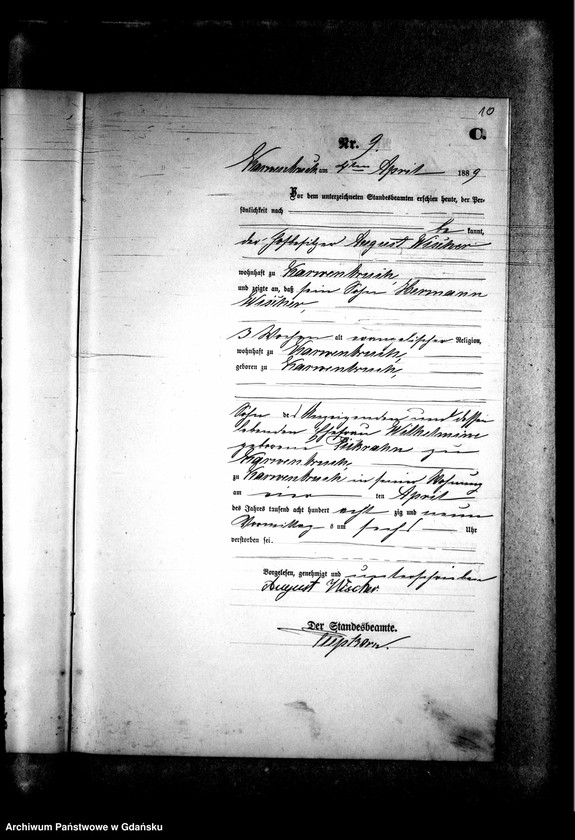 10
C.
Nr. 9.
Karwenbruch am 4ten April 1889
Vor dem unterzeichneten Standesbeamten erschien heute, der Per-
sönlichkeit nach
be kannt,
der Hofbesitzer August
wohnhaft zu Karwenbruch
und zeigte an, daß sein Sohn Hermann
3 Wochen alt evangelischer Religion,
wohnhaft zu Karwenbruch,
geboren zu Karwenbruch,
Sohn des Anzeigenden und dessen
lebenden Ehefrau Wilhelmine
geborene zu
Karwenbruch,
zu Karwenbruch in seiner Wohnung
am vier ten April
des Jahres tausend acht hundert acht zig und neun
Vormittag s um sechs Uhr
verstorben sei.
Vorgelesen, genehmigt und unterschrieben
August
Der Standesbeamte.
Archiwum Państwowe w Gdańsku